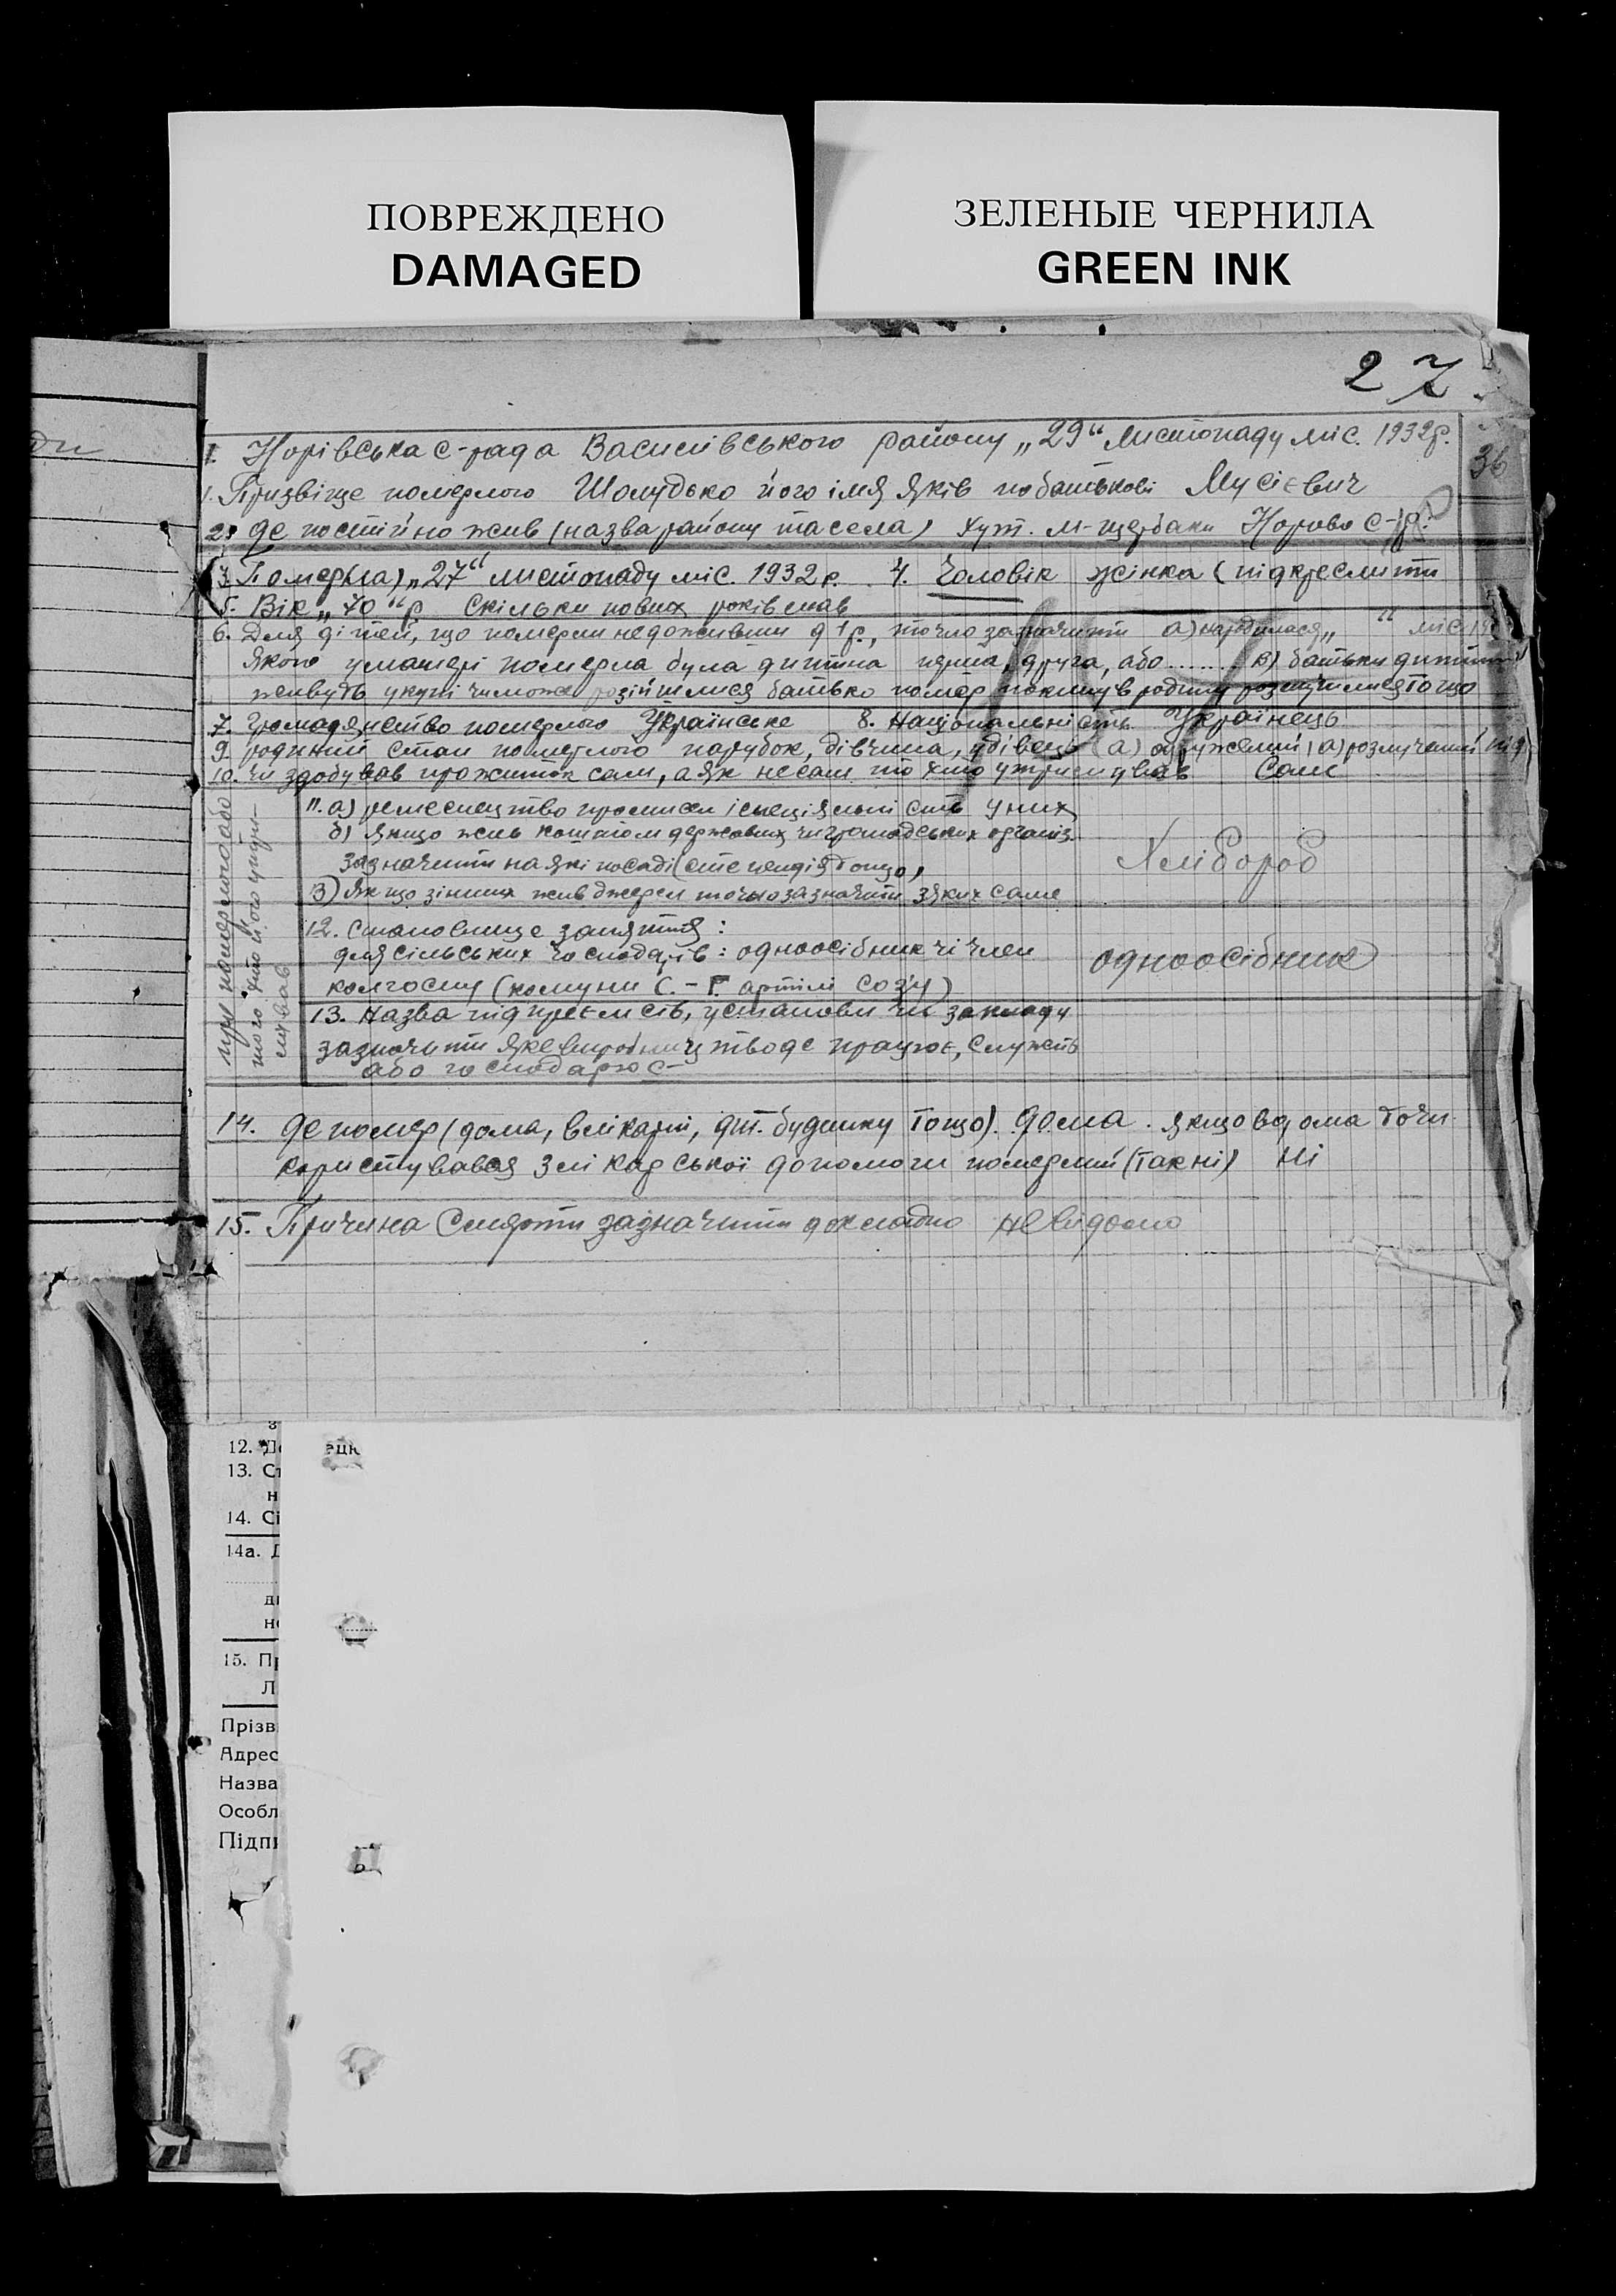 ПОВРЕЖДЕНО
DAMAGED
ЗЕЛЕНЫЕ ЧЕРНИЛА
GREEN INK
27
36
1. Норівська с-рада Василівського району „29“ листопаду міс. 1932р.
1. Призвіще померлого Шолудько його імя Яків по батькові Мусієвич
2. де постійно жив (назва району та села) хут. м-щербаки Норово с-р.
3. Помер(ла) „27“ листопаду міс. 1932 р. 4. Чоловік жінка (підкреслити
5. Вік „70“ р. Скільки нових років мав
6. Для дітей, що померли недоживши д 1 р., точно зазначити а) народилася „ “ міс. 19
якого у матері померла була дитина перша, друга, або ....... в) батьки дитини
живуть укупі чи може розійшлися батько помер покинув родину розлучилися тощо
7. Громадянство померлого Українське 8. Національність Українець
9. родиний стан померлого парубок, дівчина, удівець (а) одружений (а) розлучений під
10. Чи здобував прожиток сам, а як не сам то хто утримував Сам
при померлого або
того хто його утри-
мував
11. а) ремеснецтво промисел і спеціяльність у них
б) Якщо жив коштом державних чи громадських організ.
зазначити на які посаді (степендія тощо)
Хлібороб
в) Якщо зінших жив джерел точно зазначити з яких саме
12. Становище заняття:
для сільських господарів: одноосібник чі член
колгоспу (комуни С.-Г. артілі созу)
одноосібник
13. Назва підприємств, установи чи закладу
зазначити яке виробництво де працює, служить
або господарює
14. де помер (дома, влікарні, дит. будинку тощо). дома. якщо вдома то чи
користувався з лікарської допомоги померлий (так ні) Ні
15. Причина Смерти зазначити докладно невідомо
12. Д
ецк
13. Ст
н
14. Сі
14а. Д
15. П
Л
Прізв
Адрес
Назва
Особл
Підпи